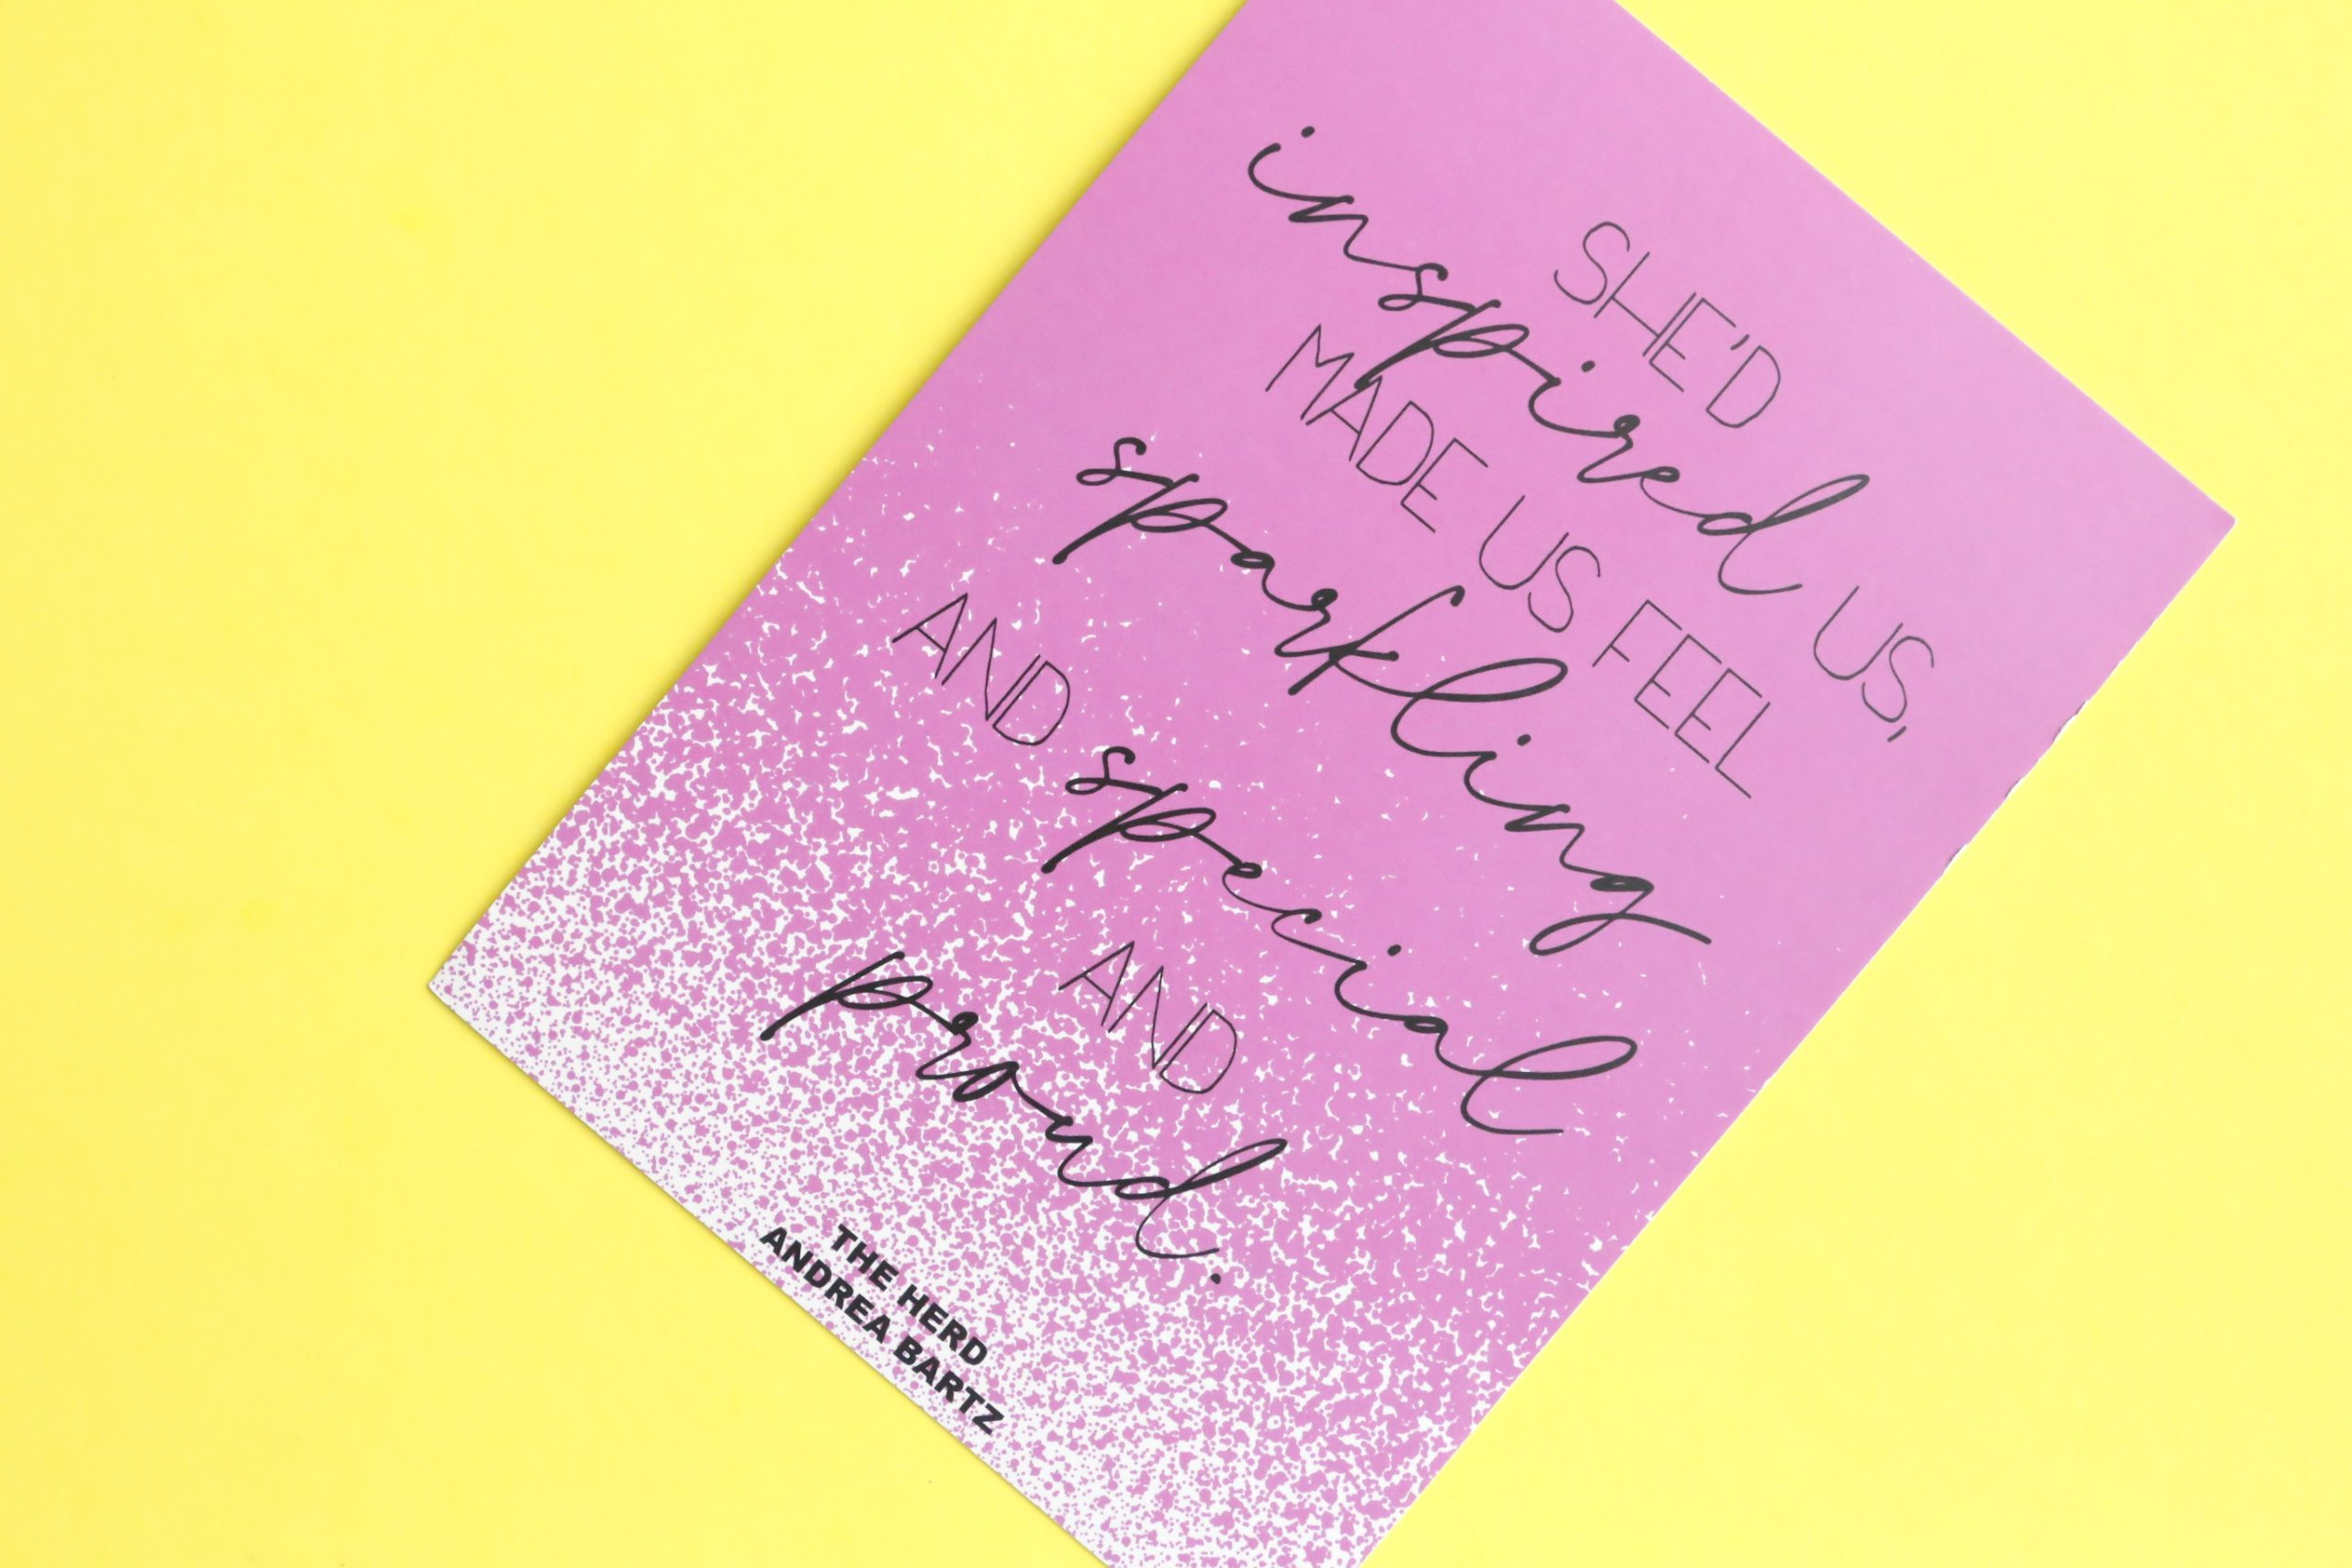 SHE'D
inspired US,
MADE US FEEL
sparkling
AND special
AND
proud.
THE HERD
ANDREA BARTZ